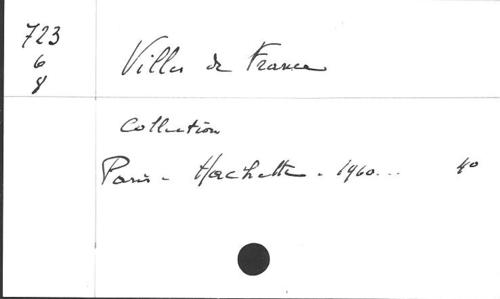 723
6
8
Villes de France
Collection
Paris - Hachette - 1960... 4o